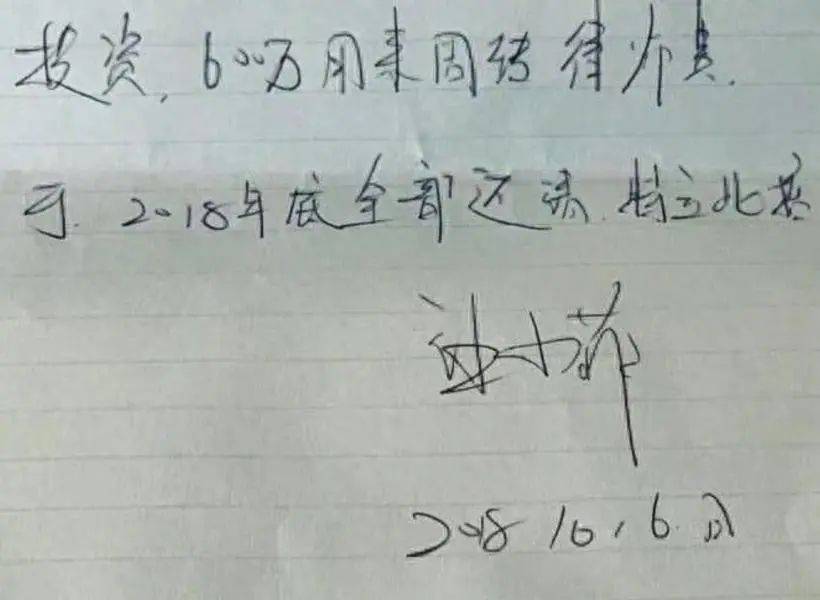 投资，600万用来周转律师费.
于. 2018年底全部还清. 特立
小菲
2018 10，6.